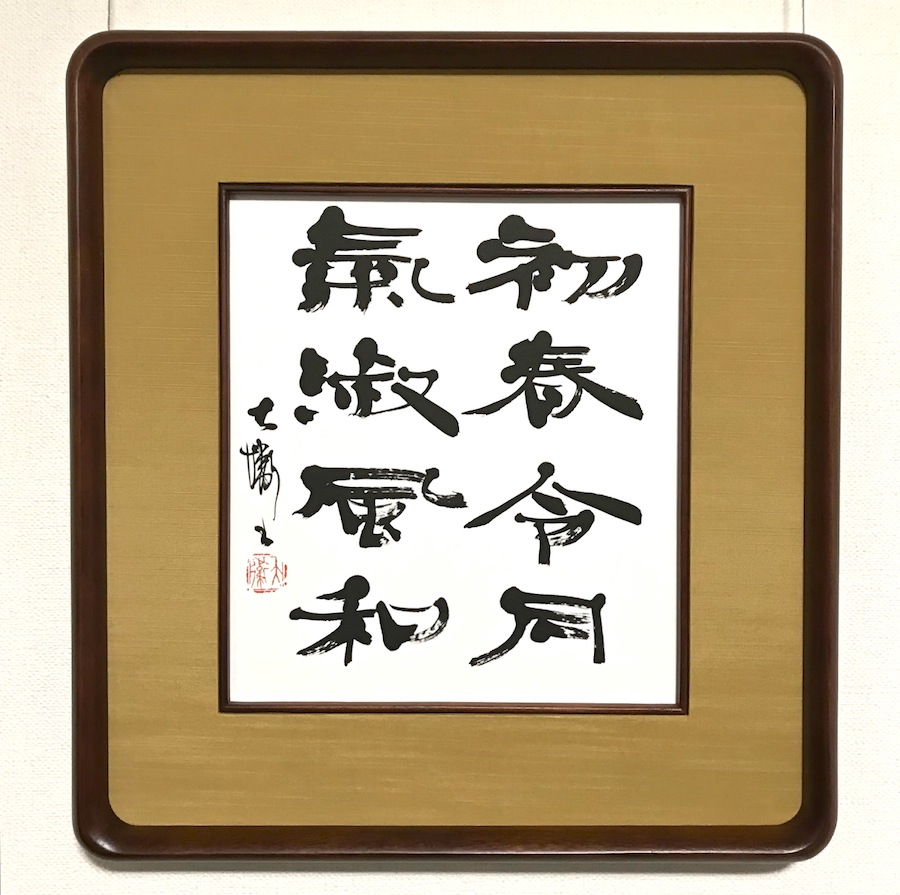 初春令月
氣淑風和